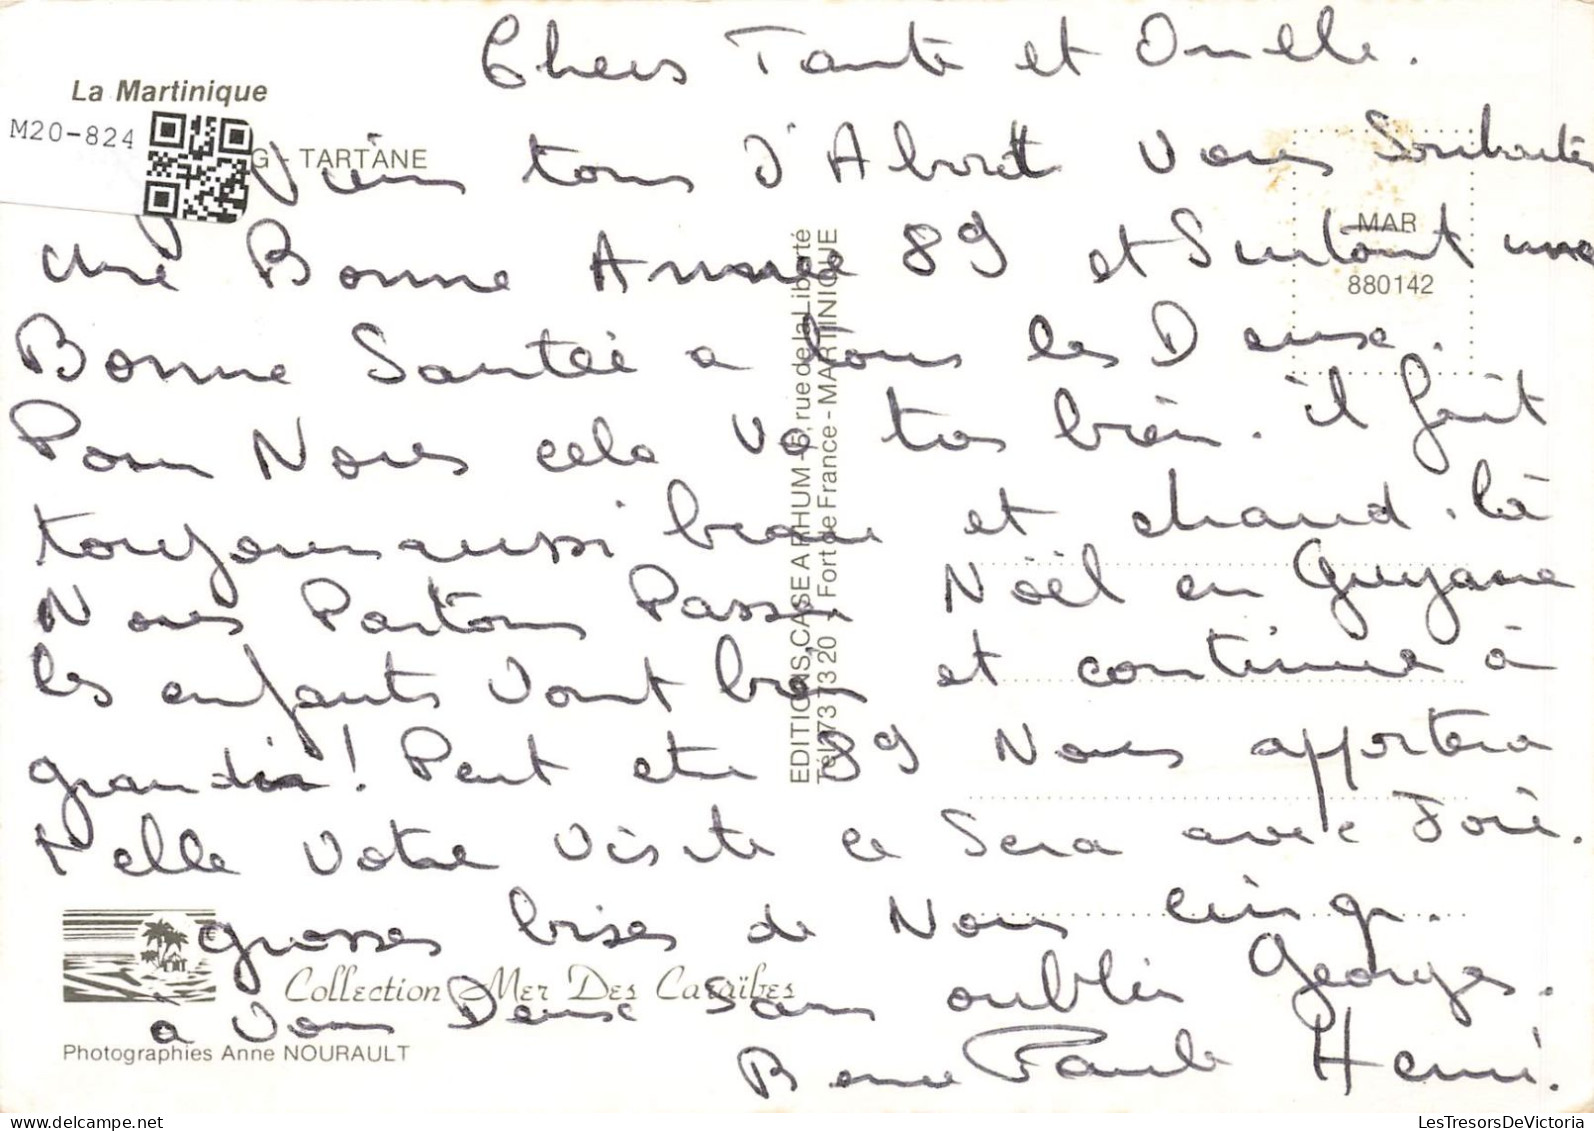 Chers Tante et Oncle.
La Martinique
M20-824
G - TARTANE
Viens tous d'Abord Vous Souhaiter
une Bonne Année 89 et Surtout une
MAR
880142
Bonne Santée a tous les Deux.
Pour Nous cela va tres bien. il fait
toujours aussi beau et chaud. là
Nous Partons Passer Noël en Guyane
les enfants vont bien et continue à
grandir! Peut etre 89 Nous apportera
t'elle Votre Visite ce Sera avec Joie.
grosses bises de Nous cinq.
à Vous Deux Sans oublier Georges.
Paule Henri.
EDITIONS CASE A RHUM - 5, rue de la Liberté
Tél. 73 73 20 - Fort de France - MARTINIQUE
Collection Mer Des Caraïbes
Photographies Anne NOURAULT
LesTresorsDeVictoria